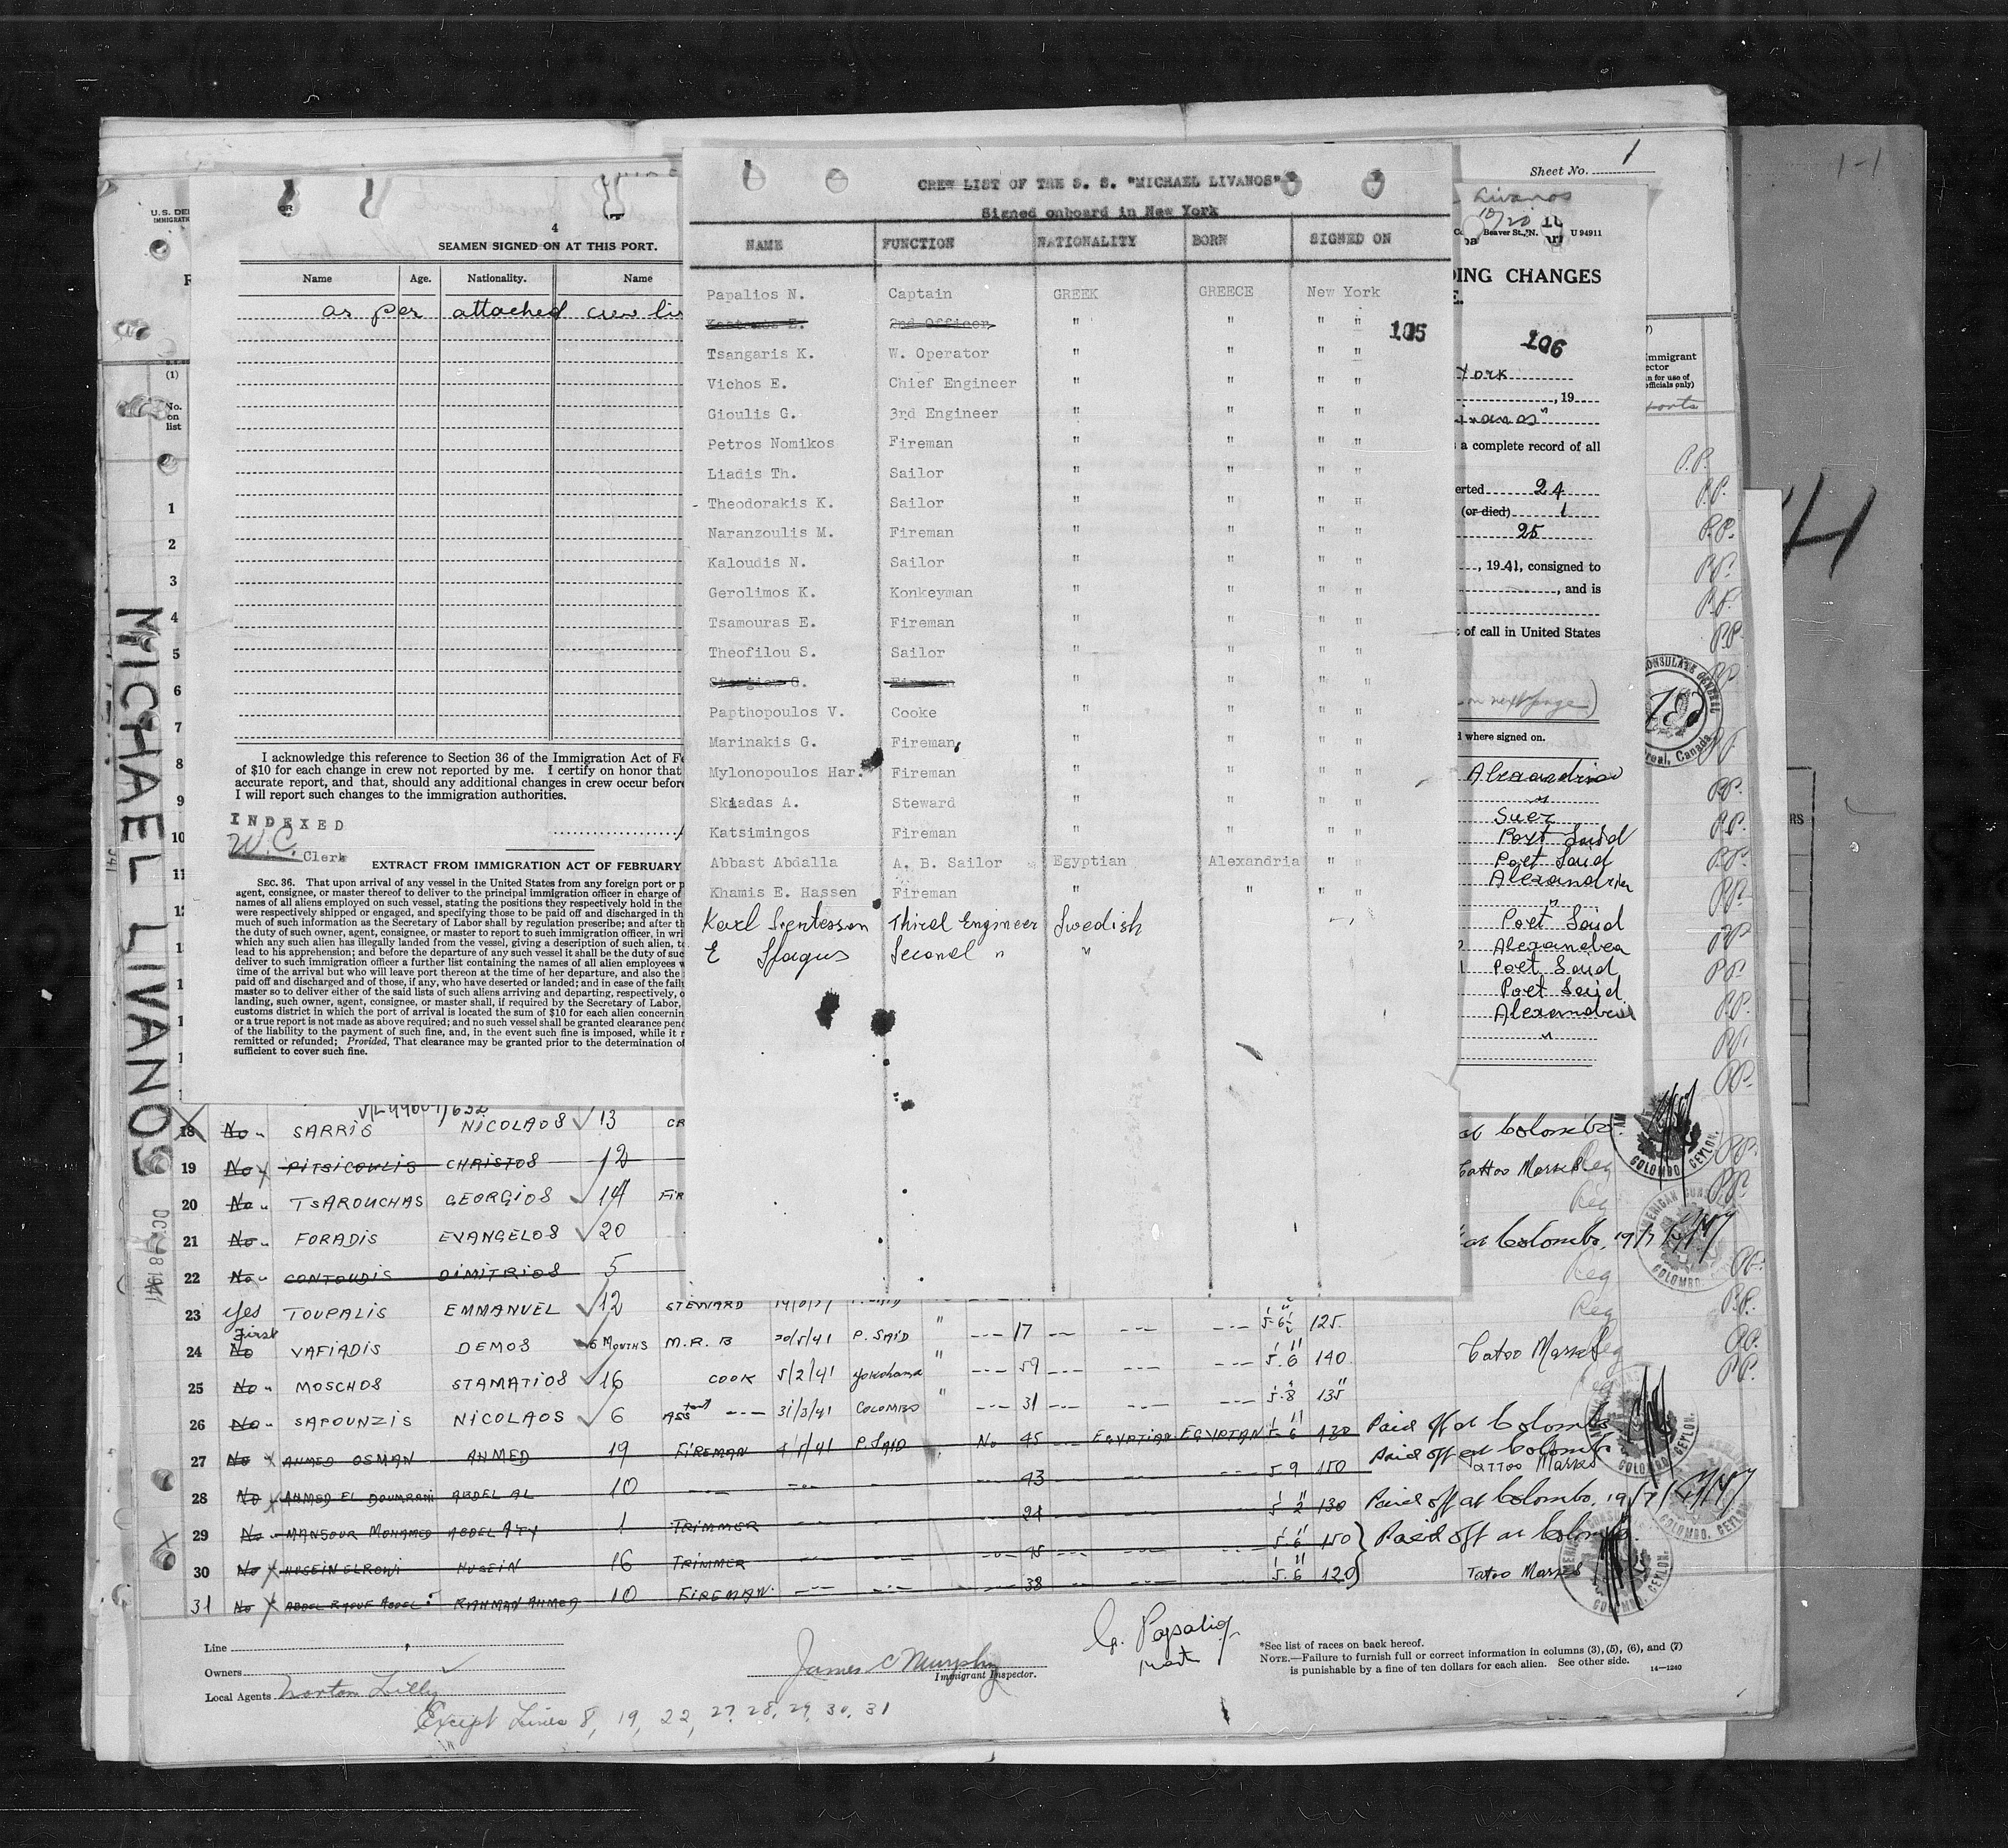 Sheet No. 1
1-1
CREW LIST OF THE S. S. "MICHAEL LIVANOS"
Signed onboard in New York
NAME FUNCTION NATIONALITY BORN SIGNED ON
Papalios N. Captain GREEK GREECE New York
2nd Officer " " " "
105
Tsangaris K. W. Operator " " " "
Vichos E. Chief Engineer " " " "
Gioulis G. 3rd Engineer " " " "
Petros Nomikos Fireman " " " "
Liadis Th. Sailor " " " "
- Theodorakis K. Sailor " " " "
Naranzoulis M. Fireman " " " "
Kaloudis N. Sailor " " " "
Gerolimos K. Konkeyman " " " "
Tsamouras E. Fireman " " " "
Theofilou S. Sailor " " " "
Fireman " " " "
Papthopoulos V. Cooke " " " "
Marinakis G. Fireman, " " " "
Mylonopoulos Har. Fireman " " " "
Skiadas A. Steward " " " "
Katsimingos Fireman " " " "
Abbast Abdalla A. B. Sailor Egyptian Alexandria " "
Khamis E. Hassen Fireman " " " "
Karl Third Engineer Swedish
E Second " "
U.S. DE
IMMIGRAT
(1)
No. on list
4
SEAMEN SIGNED ON AT THIS PORT.
Name Age. Nationality. Name
as per attached crew lis
I acknowledge this reference to Section 36 of the Immigration Act of Fe
of $10 for each change in crew not reported by me. I certify on honor that
accurate report, and that, should any additional changes in crew occur before
I will report such changes to the immigration authorities.
INDEXED
W.C. Clerk
EXTRACT FROM IMMIGRATION ACT OF FEBRUARY
SEC. 36. That upon arrival of any vessel in the United States from any foreign port or p
agent, consignee, or master thereof to deliver to the principal immigration officer in charge of
names of all aliens employed on such vessel, stating the positions they respectively hold in the
were respectively shipped or engaged, and specifying those to be paid off and discharged in th
much of such information as the Secretary of Labor shall by regulation prescribe; and after th
the duty of such owner, agent, consignee, or master to report to such immigration officer, in wri
which any such alien has illegally landed from the vessel, giving a description of such alien, to
lead to his apprehension; and before the departure of any such vessel it shall be the duty of suc
deliver to such immigration officer a further list containing the names of all alien employees w
time of the arrival but who will leave port thereon at the time of her departure, and also the
paid off and discharged and of those, if any, who have deserted or landed; and in case of the fail
master so to deliver either of the said lists of such aliens arriving and departing, respectively, o
landing, such owner, agent, consignee, or master shall, if required by the Secretary of Labor,
customs district in which the port of arrival is located the sum of $10 for each alien concernin
or a true report is not made as above required; and no such vessel shall be granted clearance pend
of the liability to the payment of such fine, and, in the event such fine is imposed, while it r
remitted or refunded; Provided, That clearance may be granted prior to the determination of
sufficient to cover such fine.
MICHAEL LIVANOS
1
2
3
4
5
6
7
8
9
10
11
Livanos
10/20
Beaver St., N. U 94911
DING CHANGES
E.
106
York
, 19
a complete record of all
erted 24
(or died) 1
25
, 1941, consigned to
, and is
of call in United States
on next page)
d where signed on.
Alexandria
"
Suez
Port Said
Port Said
Alexandria
"
Port Said
Alexandria
Port Said
Port Said
Alexandria
"
Immigrant
ector
n for use of
officials only)
18 No " SARRIS NICOLAOS 13 at Colombo.
19 No x PITSICOULIS CHRISTOS 12 Tattoo Marks Reg
20 No " TSAROUCHAS GEORGIOS 14 FIR Reg
21 No " FORADIS EVANGELOS 20 at Colombo, 19/7
22 No " CONTOUDIS DIMITRIOS 5 Reg
23 yes TOUPALIS EMMANUEL 12 STEWARD 125 Reg
24 First No VAFIADIS DEMOS 6 MONTHS M.R.B 20/5/41 P. SAID " 17 5.6 140
25 No " MOSCHOS STAMATIOS 16 COOK 5/2/41 Yokohama " 59 5.8 135
26 No " SAPOUNZIS NICOLAOS 6 ASS 31/3/41 COLOMBO " 31
27 No x AHMED OSMAN AHMED 19 FIREMAN P. SAID No 45 EGYPTIAN EGYPTIAN 5.6 130 Paid off at Colombo
28 No x AHMED EL DOUMRANI ABDEL AL 10 43 5.9 150 Paid off at Colombo Tattoo Marks
29 No MANSOUR MOHAMED ABDEL 1 TRIMMER 24 5.2 130 Paid off at Colombo. 19/7
30 No x HUSEIN ELROWI HUSEIN 16 TRIMMER 5.6 150 Paid off at Colombo.
31 No x RAHMAN AHMED 10 FIREMAN 38 5.6 120 Tatoo Marks
Line
Owners
Local Agents Norton Lilly
James C Murphy
Immigrant Inspector.
*See list of races on back hereof.
NOTE.—Failure to furnish full or correct information in columns (3), (5), (6), and (7)
is punishable by a fine of ten dollars for each alien. See other side.
14—1240
Except Lines 8, 19, 22, 27, 28, 29, 30, 31